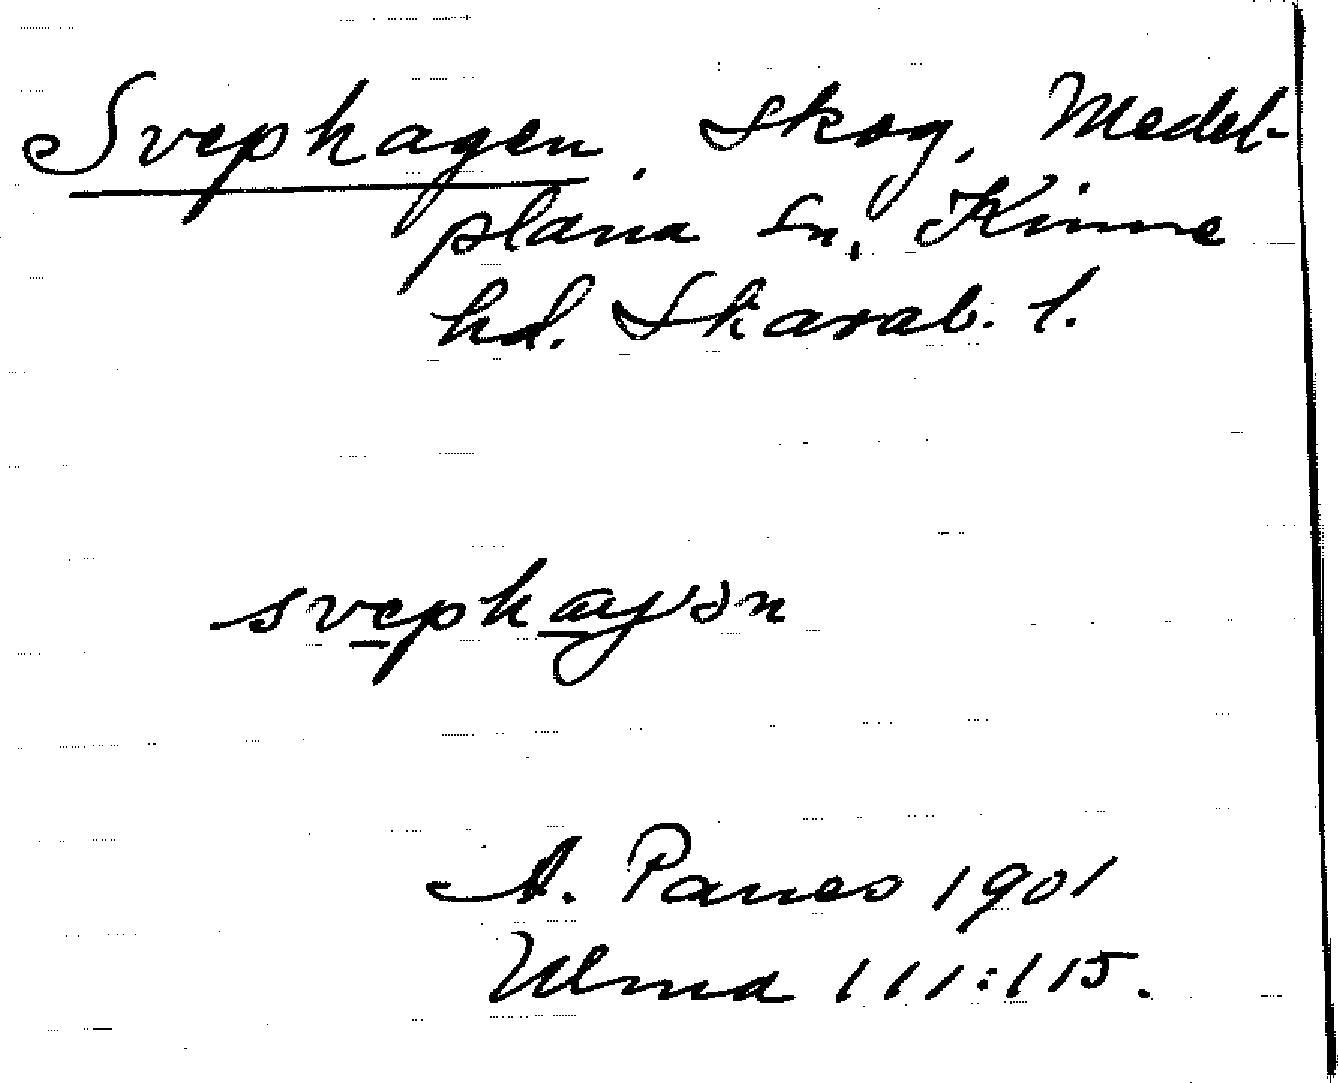 Svephagen. Skog, Medel-
plana sn, Kinne
hd. Skarab. l.
svephaγən
A. Panes 1901
Ulma 111:115.